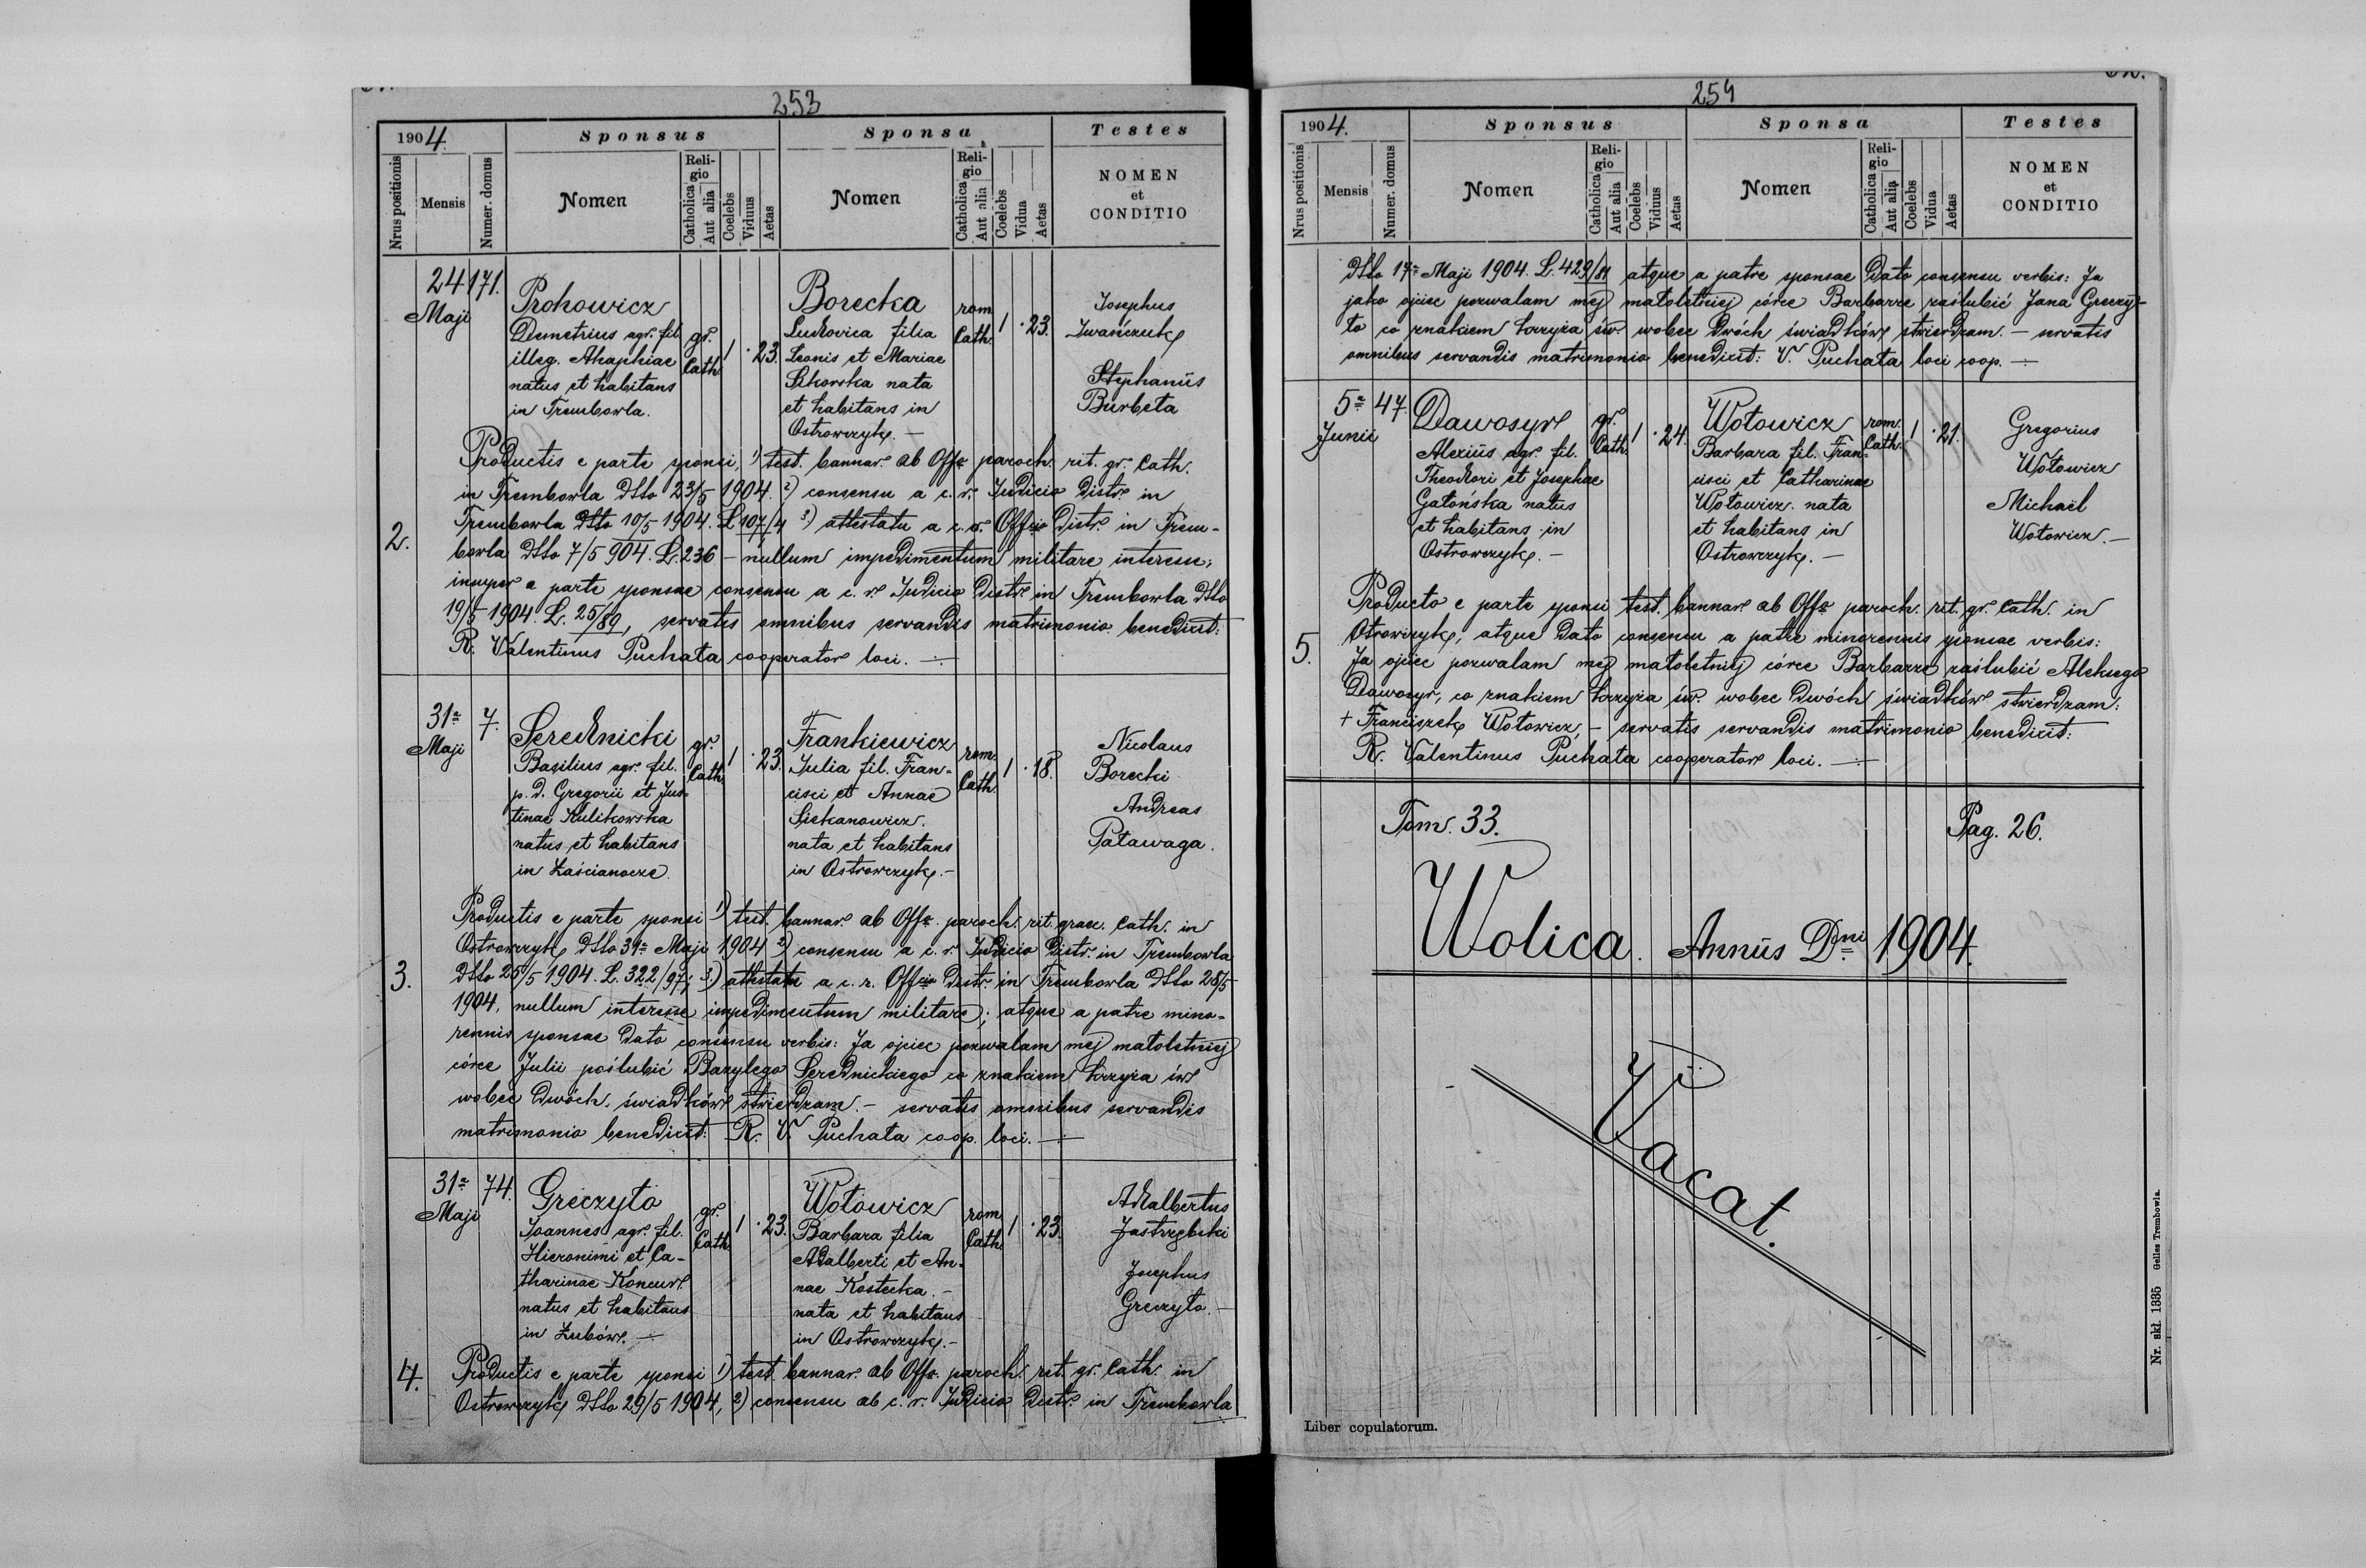 253
1904.
Sponsus
Sponsa
Testes
Nrus positionis
Mensis
Numer. domus
Nomen
Religio
Catholica
Aut alia
Coelebs
Viduus
Aetas
Nomen
Religio
Catholica
Aut alia
Coelebs
Vidua
Aetas
NOMEN
et
CONDITIO
2.
24
Maji
171.
Prohowicz
Demetrius agr. fil.
illeg. Ahaphiae
natus et habitans
in Trembowla.
gr.
Cath.
1 . 23.
Borecka
Ludovica filia
Leonis et Mariae
Sikorska nata
et habitans in
Ostrowczyk. —
rom.
Cath.
1 . 23.
Josephus
Iwańczuk
Stephanus
Burbeta
Productis e parte sponsi, 1) test. bannar. ab Offo paroch. rit. gr. Cath.
in Trembowla dtto 23/5 1904. 2) consensu a c. r. Judicio Distr. in
Trembowla dtto 10/5 1904. L. 107/4 3.) attestatu a c. r. Officio Distr. in Trem-
bowla dtto 7/5 904. L. 236 — nullum impedimentum militare interesse;
insuper e parte sponsae consensu a c. r. Judicio Distr. in Trembowla dtto
19/5 1904. L. 25/89, servatis omnibus servandis matrimonio benedixit:
R. Valentinus Puchata cooperator loci. —
3.
31a
Maji
7.
Serednicki
Basilius agr. fil.
p. d. Gregorii et Jus-
tinae Kulikowska
natus et habitans
in Zaścianocze.
gr.
Cath.
1 . 23.
Frankiewicz
Julia fil. Fran-
cisci et Annae
Siekanowicz.
nata et habitans
in Ostrowczyk. —
rom.
Cath.
1 . 18.
Nicolaus
Borecki
Andreas
Patawaga.
Productis e parte sponsi 1) test. bannar. ab Offo. paroch. rit. graec. Cath. in
Ostrowczyk dtto 31a Maji 1904 2) consensu a c. r. Judicio Distr. in Trembowla
dtto 25/5 1904. L. 322/97; 3.) attestatu a c. r. Officio Distr. in Trembowla dtto 28/5
1904, nullum interesse impedimentum militare; atque a patre mino-
rennis sponsae dato consensu verbis: Ja ojciec pozwalam mej małoletniej
córce Julii poślubić Bazylego Serednickiego co znakiem krzyża św.
wobec dwóch świadków stwierdzam. — servatis omnibus servandis
matrimonio benedixit: R. V. Puchata coop. loci. —
4.
31a
Maji
74.
Greczyto
Joannes agr. fil.
Hieronimi et Ca-
tharinae Koncur
natus et habitans
in Zubów. —
gr.
Cath.
1 . 23.
Wołowicz
Barbara filia
Adalberti et An-
nae Kostecka. —
nata et habitans
in Ostrowczyk. —
rom.
Cath.
1 . 23.
Adalbertus
Jastrzębski
Josephus
Greczyto. —
Productis e parte sponsi 1) test. bannar. ab Offo. paroch. rit. gr. Cath. in
Ostrowczyk dtto 29/5 1904, 2) consensu ab c. r. Judicio Distr. in Trembowla
254
1904.
Sponsus
Sponsa
Testes
Nrus positionis
Mensis
Numer. domus
Nomen
Religio
Catholica
Aut alia
Coelebs
Viduus
Aetas
Nomen
Religio
Catholica
Aut alia
Coelebs
Vidua
Aetas
NOMEN
et
CONDITIO
dtto 17a Maji 1904. L. 429/81 atque a patre sponsae dato consensu verbis: Ja
jako ojciec pozwalam mej małoletniej córce Barbarze zaślubić Jana Greczy-
to co znakiem krzyża św. wobec dwóch świadków stwierdzam. — servatis
omnibus servandis matrimonio benedixit: V. Puchata loci coop. —
5.
5a
Junii
47.
Dawosyr
Alexius agr. fil.
Theodori et Josephae
Gatońska natus
et habitans in
Ostrowczyk. —
gr.
Cath.
1 . 24.
Wołowicz
Barbara fil. Fran-
cisci et Catharinae
Wołowicz nata
et habitans in
Ostrowczyk. —
rom.
Cath.
1 . 21.
Gregorius
Wołowicz
Michaël
Wołowicz. —
Producto e parte sponsi test. bannar. ab Offo paroch. rit. gr. Cath. in
Otrowczyk, atque dato consensu a patre minorennis sponsae verbis:
Ja ojciec pozwalam mej małoletniej córce Barbarze zaślubić Aleksego
Dawosyr, co znakiem krzyża św. wobec dwóch świadków stwierdzam:
+ Franciszek Wołowicz, — servatis servandis matrimonio benedixit:
R. Valentinus Puchata cooperator loci. —
Tom. 33.
Pag. 26.
Wolica. Annus Dni 1904.
Vacat.
Liber copulatorum.
Nr. skł. 1335 Gelles Trembowla.